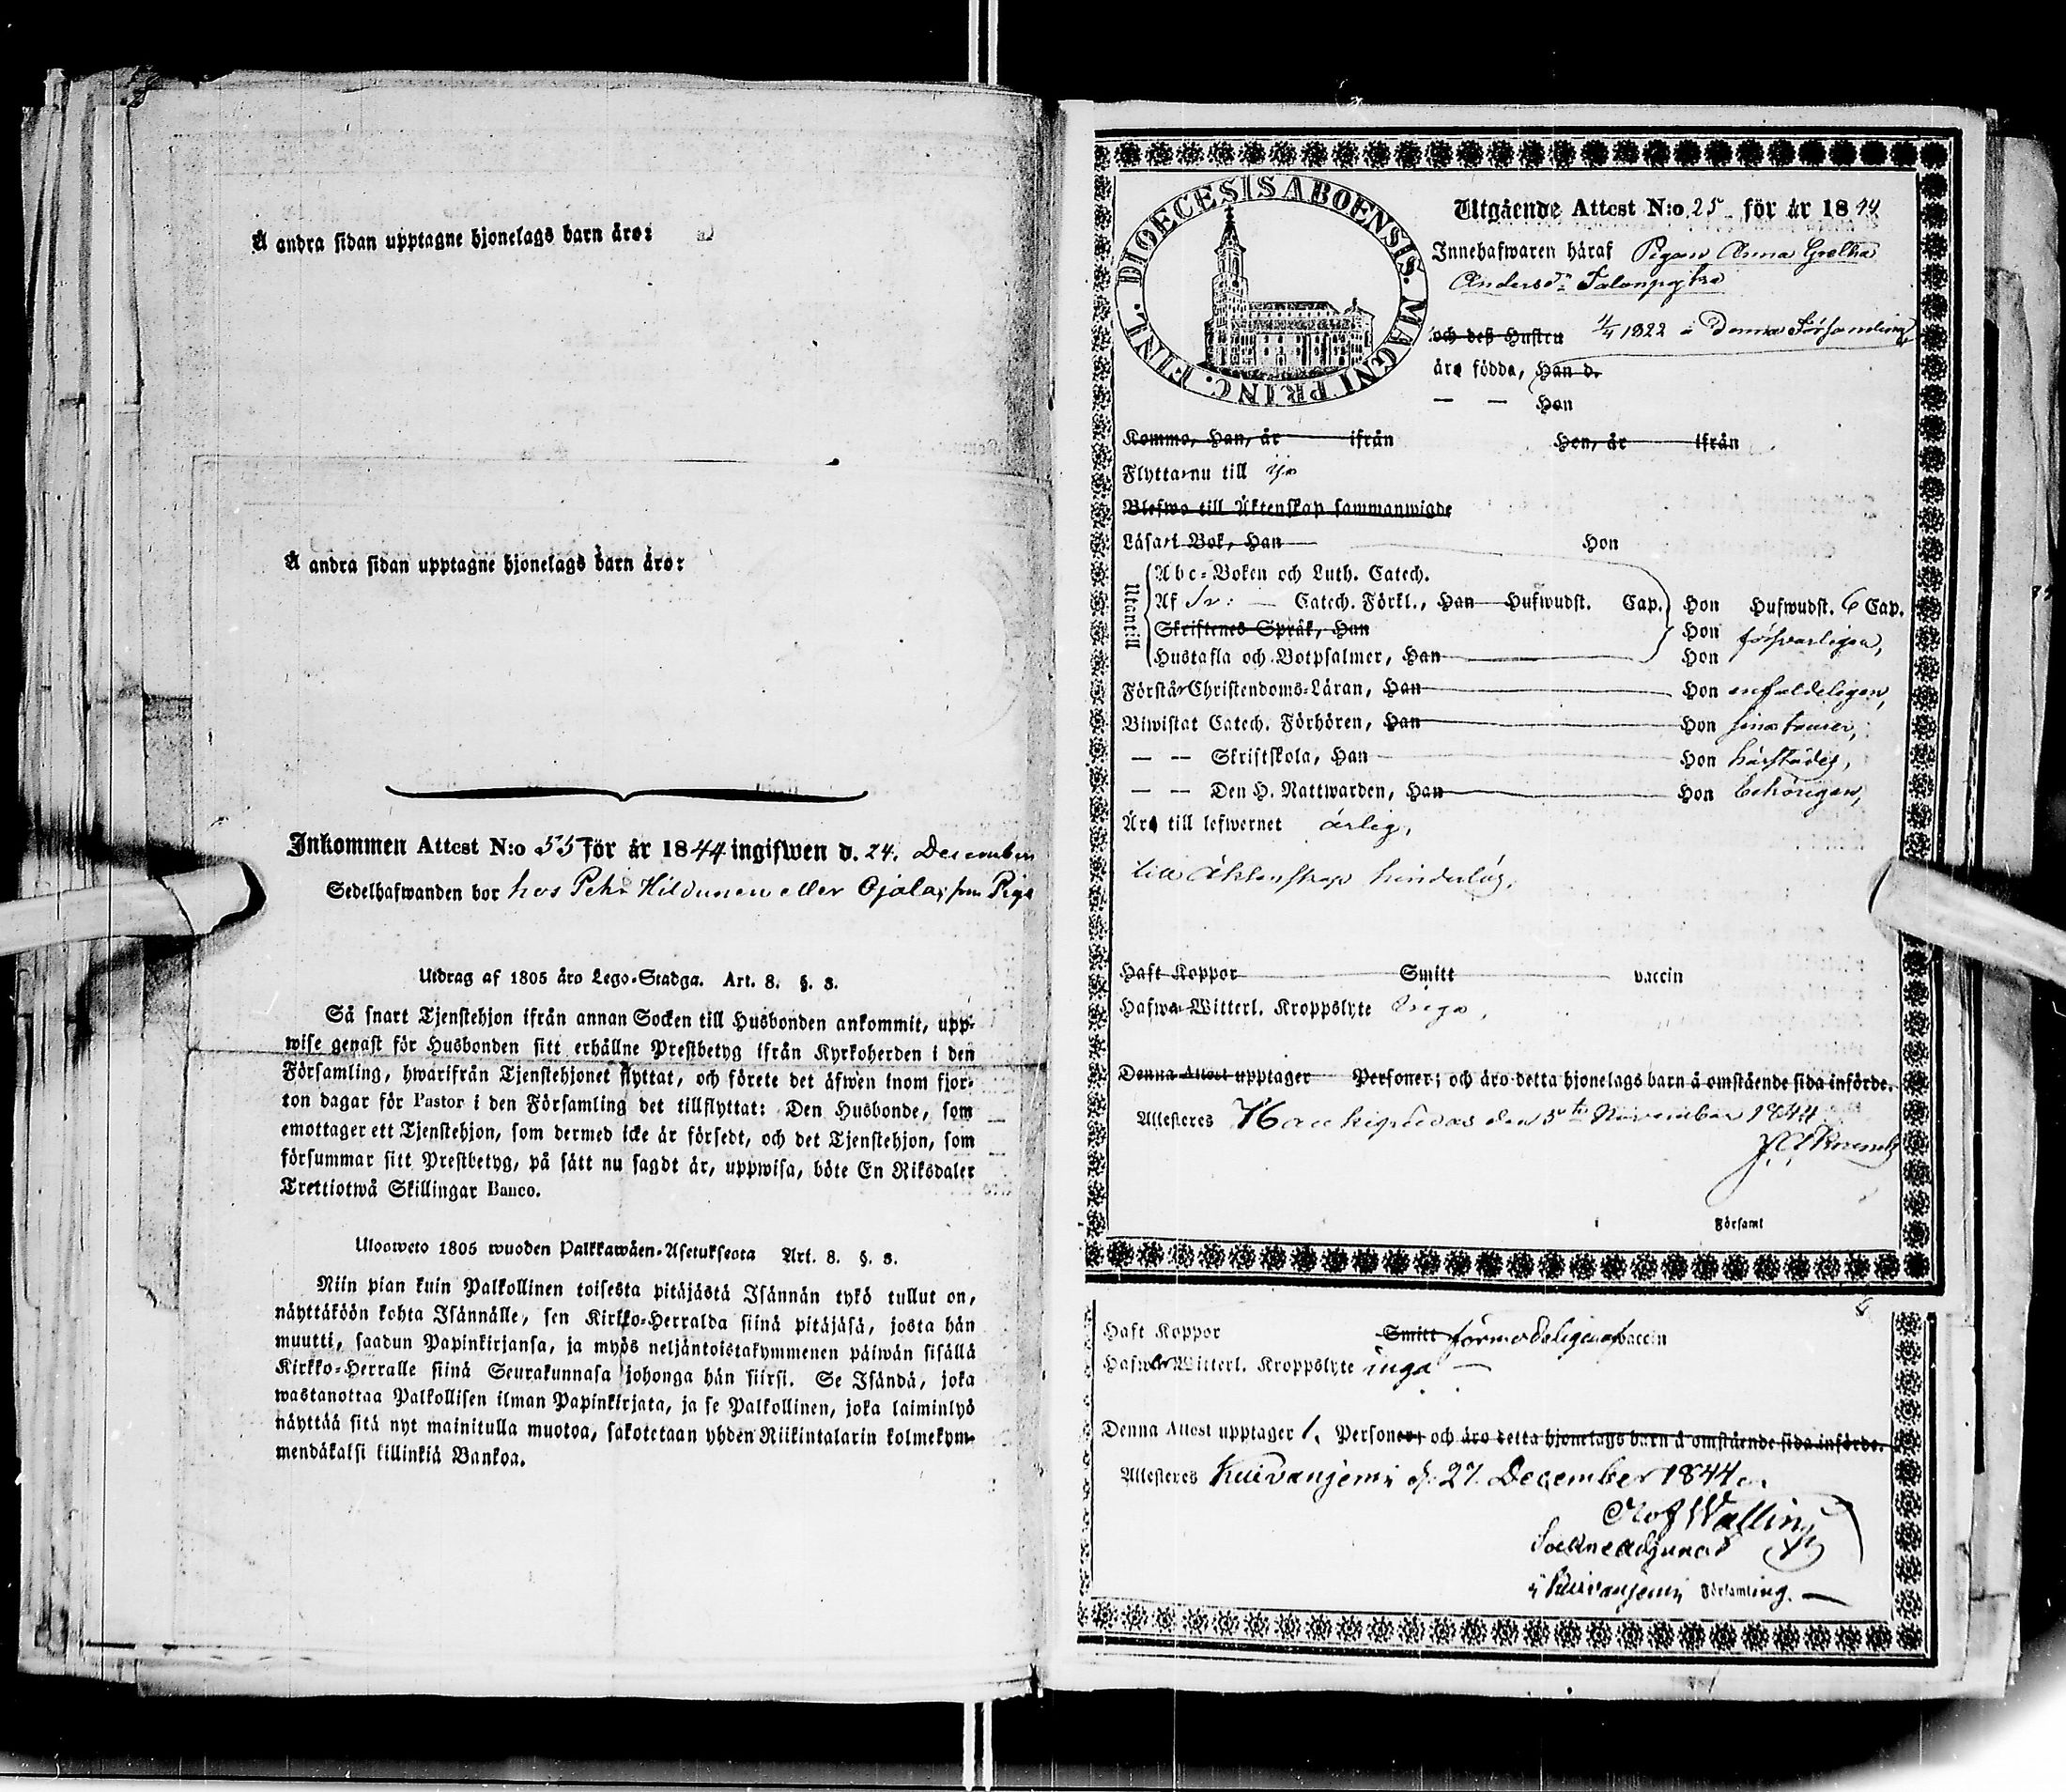 Å andra sidan upptagne hjonelags barn äro:
Å andra sidan upptagne hjonelags barn äro:
Inkommen Attest N:o 55 för år 1844 ingifwen d. 24. December
Sedelhafwanden bor hos Pehr Hildunen eller Ojala, som Piga
Utdrag af 1805 års Lego-Stadga. Art. 8. §. 3.
Så snart Tjenstehjon ifrån annan Socken till Husbonden ankommit, upp-
wise genast för Husbonden sitt erhållne Prestbetyg ifrån Kyrkoherden i den
Församling, hwarifrån Tjenstehjonet flyttat, och förete det äfwen inom fjor-
ton dagar för Pastor i den Församling det tillflyttat: Den Husbonde, som
emottager ett Tjenstehjon, som dermed icke är försedt, och det Tjenstehjon, som
försummar sitt Prestbetyg, på sätt nu sagdt är, uppwisa, böte En Riksdaler
Trettiotwå Skillingar Banco.
Ulosweto 1805 wuoden Palkkawäen-Asetuksesta Art. 8. §. 3.
Niin pian kuin Palkollinen toisesta pitäjästä Isännän tykö tullut on,
näyttäköön kohta Isännälle, sen Kirkko-Herralda siinä pitäjäsä, josta hän
muutti, saadun Papinkirjansa, ja myös neljäntoistakymmenen päiwän sisällä
Kirkko-Herralle siinä Seurakunnasa johonga hän siirsi. Se Isändä, joka
wastanottaa Palkollisen ilman Papinkirjata, ja se Palkollinen, joka laiminlyö
näyttää sitä nyt mainitulla muotoa, sakotetaan yhden Riikintalarin kolmekym-
mendäkaksi killinkiä Bankoa.
DIOECESIS ABOENSIS. MAGNI PRINC. FINL.
Utgående Attest N:o 25 för år 1844
Innehafwaren häraf Pigan Anna Gretha
Andersd:r
och deß Hustru 4/4 1822 i Denna Församling
äro födda, Han d.
— — Hon
Komma, Han, år ifrån Hon, år ifrån
Flytta nu till Ijo
Blefwo till Äktenskap sammanwigde
Läsa i Bok, Han Hon
Utantill
Abc-Boken och Luth. Catech.
Af Sv: Catech. Förkl., Han Hufwudst. Cap. Hon Hufwudst. 6 Cap.
Skriftenes Språk, Han Hon försvarligen,
Hustafla och Botpsalmer, Han Hon
Förstå Christendoms-Läran, Han Hon enfaldeligen,
Biwistat Catech. Förhören, Han Hon sina turer,
— — Skriftskola, Han Hon härstädes,
— — Den H. Nattwarden, Han Hon behörigen,
Äro till lefwernet ärlig,
till Äktenskap hinderlös,
Haft Koppor Smitt vaccin
Hafwa Witterl. Kroppslyte Inga,
Denna Attest upptager Personer; och äro detta hjonelags barn å omstående sida införde.
Attesteras Haukipudas den 5te November 1844
Församl
Haft Koppor Smitt förmodeligen af vaccin
Hafwer Witterl. Kroppslyte inga —
Denna Attest upptager 1. Personer; och äro detta hjonelags barn å omstående sida införde.
Attesteras Kuivaniemi d. 27. December 1844
Olof Walling
Sockneadjunct
i Kuivaniemi Församling. —